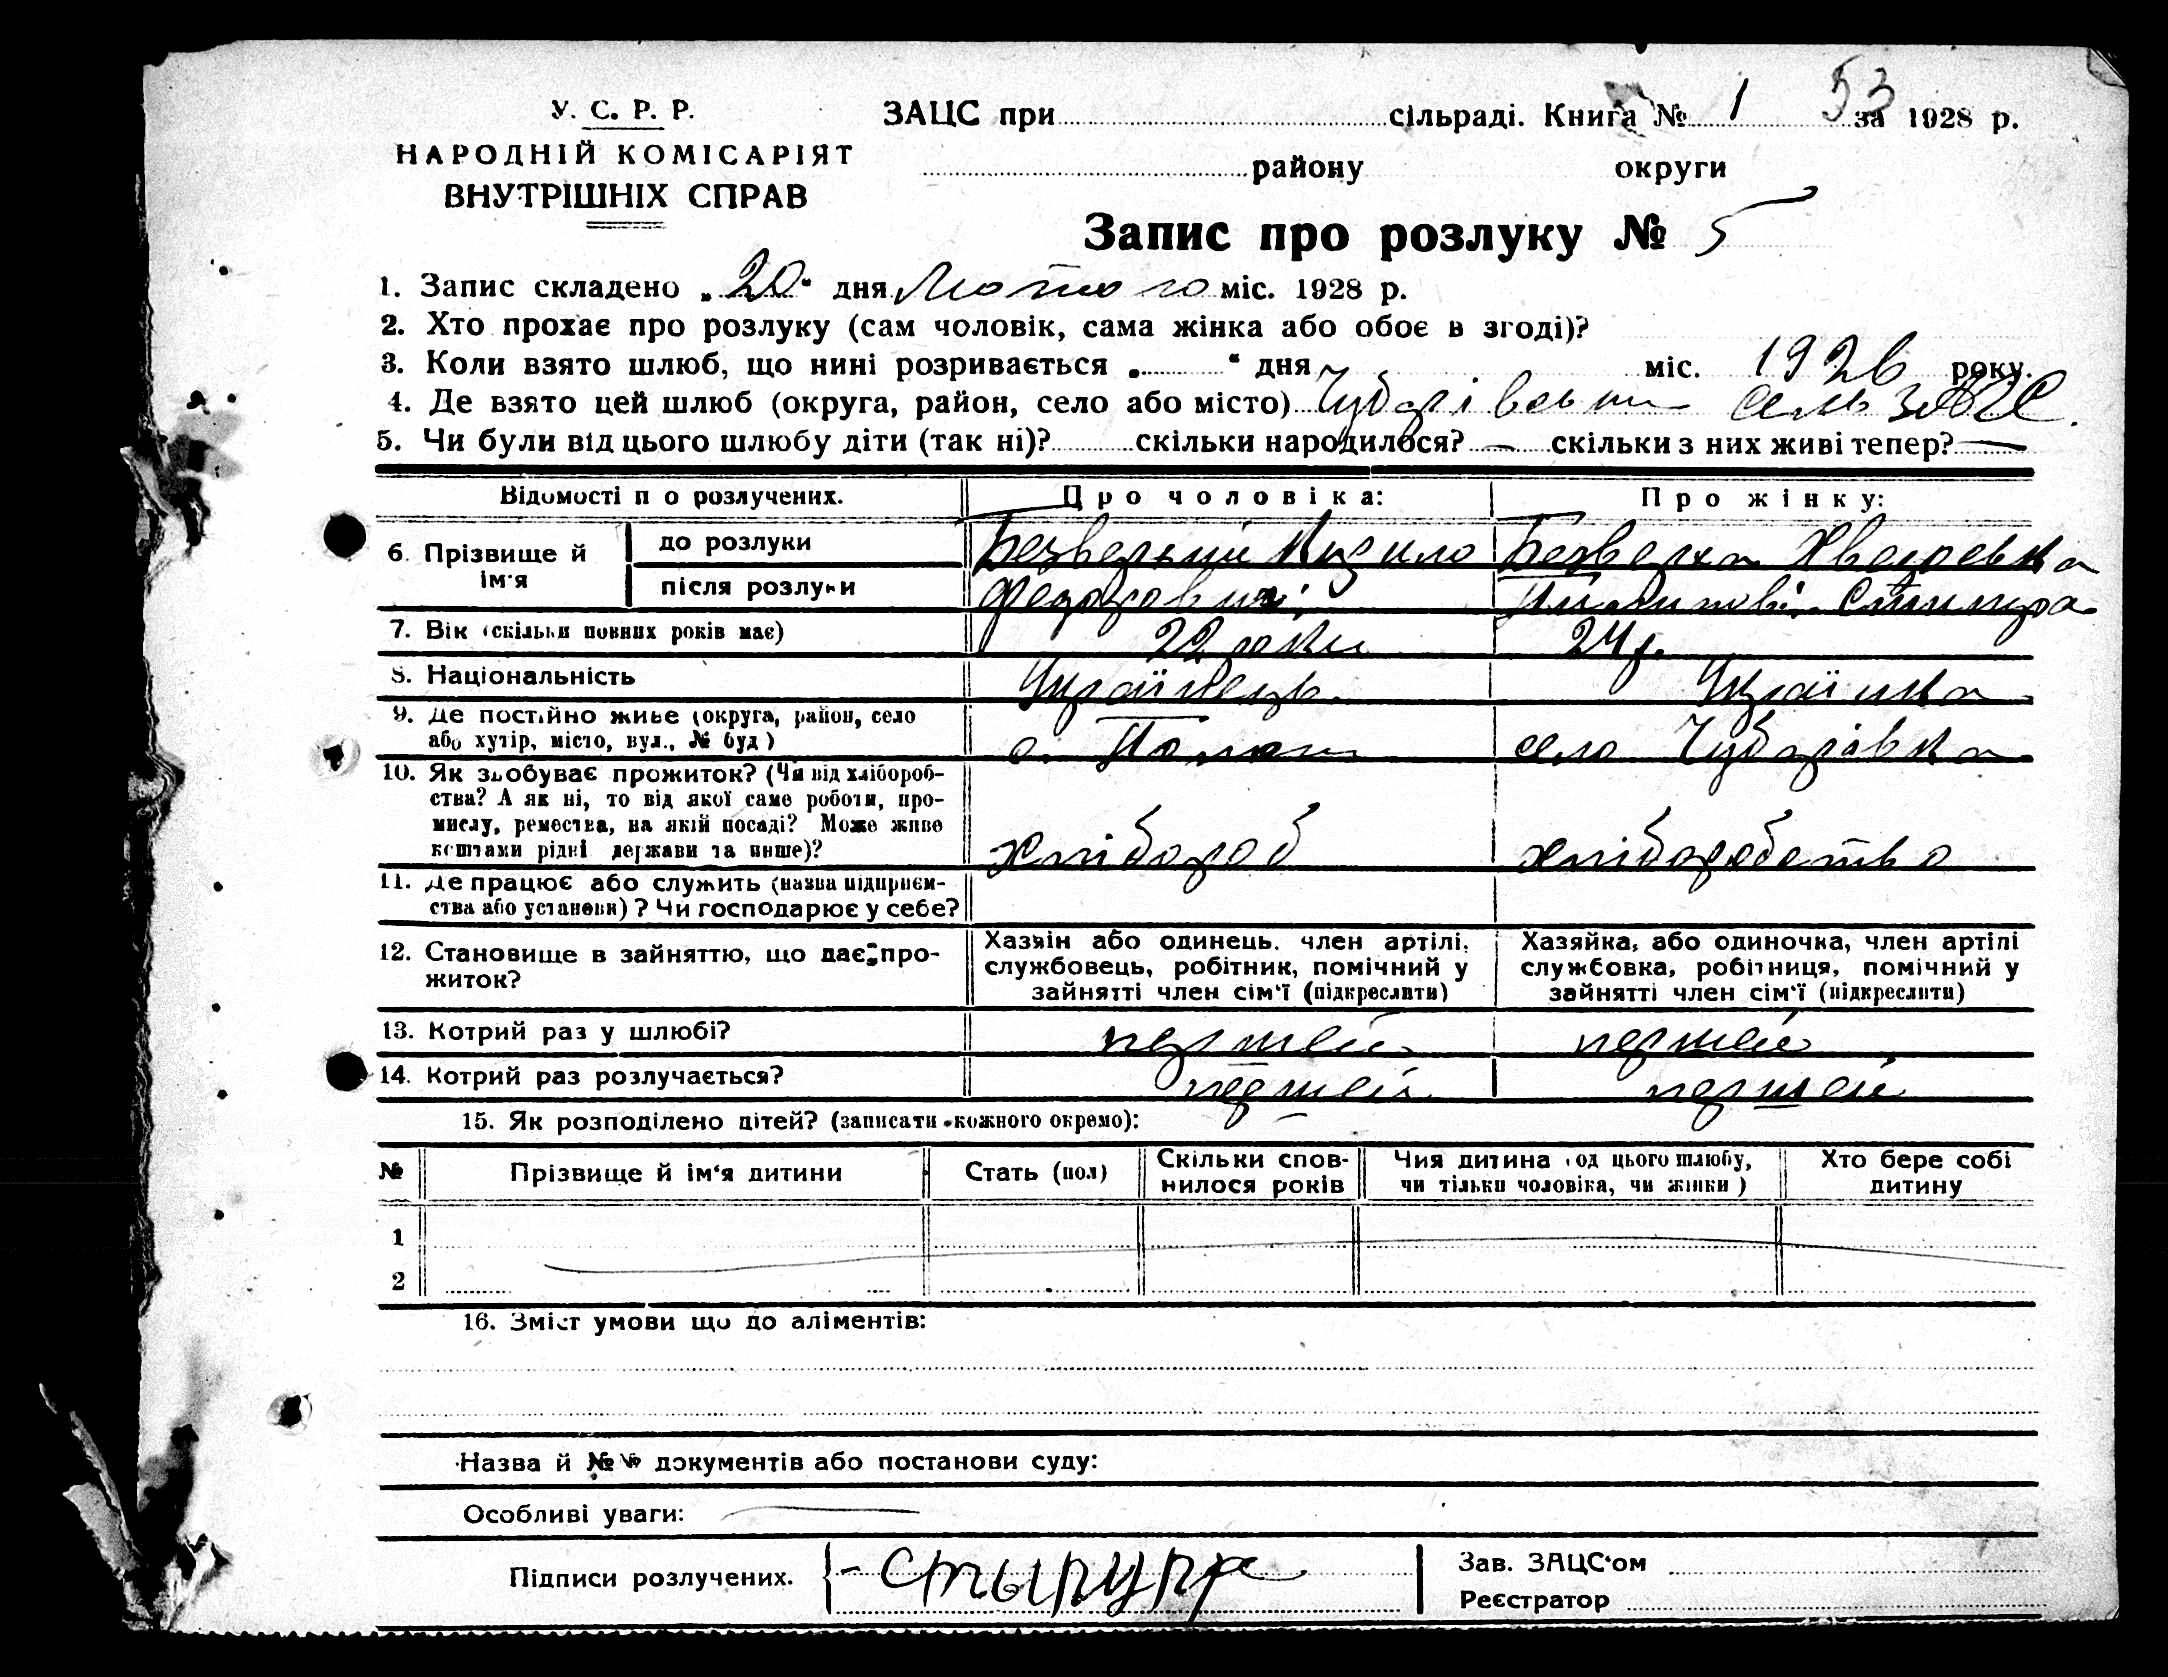 У. С. Р. Р.
НАРОДНІЙ КОМІСАРІЯТ
ВНУТРІШНІХ СПРАВ
ЗАЦС при сільраді. Книга № 1 53 за 1928 р.
району округи
Запис про розлуку № 5
1. Запис складено „20“ дня Лютого міс. 1928 р.
2. Хто прохає про розлуку (сам чоловік, сама жінка або обоє в згоді)?
3. Коли взято шлюб, що нині розривається „ “ дня міс. 1926 року.
4. Де взято цей шлюб (округа, район, село або місто) ЗАГС.
5. Чи були від цього шлюбу діти (так ні)? скільки народилося? — скільки з них живі тепер? —
Відомості п о розлучених. Про чоловіка: Про жінку:
6. Прізвище й ім'я
до розлуки Безверхий Безверха
після розлуки Федорович
7. Вік (скільки повних років має) 22 роки 24 р.
8. Національність Українець Українка
9. Де постійно живе (округа, район, село або хутір, місто, вул., № буд) с. Пологи село Чубарівка
10. Як здобуває прожиток? (Чи від хлібороб-
ства? А як ні, то від якої саме роботи, про-
мислу, ремества, на якій посаді? Може живе
коштами рідні держави та инше)? хлібороб хліборобство
11. Де працює або служить (назва підприєм-
ства або установи)? Чи господарює у себе?
12. Становище в зайняттю, що дає про-
житок?
Хазяін або одинець. член артілі,
службовець, робітник, помічний у
зайнятті член сім'ї (підкреслити)
Хазяйка, або одиночка, член артілі
службовка, робітниця, помічний у
зайнятті член сім'ї (підкреслити)
13. Котрий раз у шлюбі? першей першей
14. Котрий раз розлучається? першей першей
15. Як розподілено дітей? (записати кожного окремо):
№ Прізвище й ім'я дитини Стать (пол) Скільки спов-
нилося років Чия дитина (од цього шлюбу,
чи тільки чоловіка, чи жінки) Хто бере собі
дитину
1
2
16. Зміст умови що до аліментів:
Назва й № № документів або постанови суду:
Особливі уваги: —
Підписи розлучених.
Зав. ЗАЦС'ом
Реєстратор